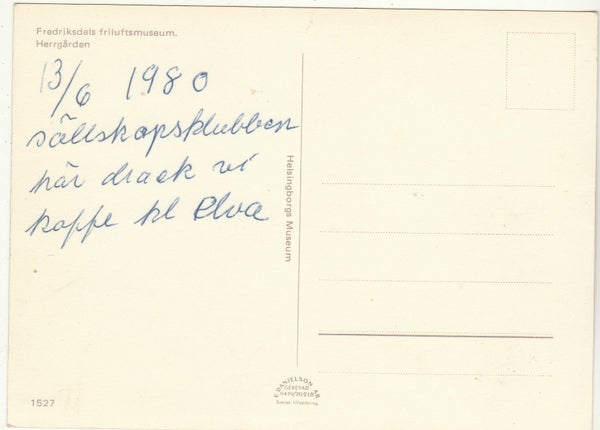 Fredriksdals friluftsmuseum.
Herrgården
13/6 1980
sällskapsklubben
här drack vi
kaffe kl elva
Helsingborgs Museum
E. DANIELSON AB
GENEVAD
0430/70518
Svensk tillverkning
1527